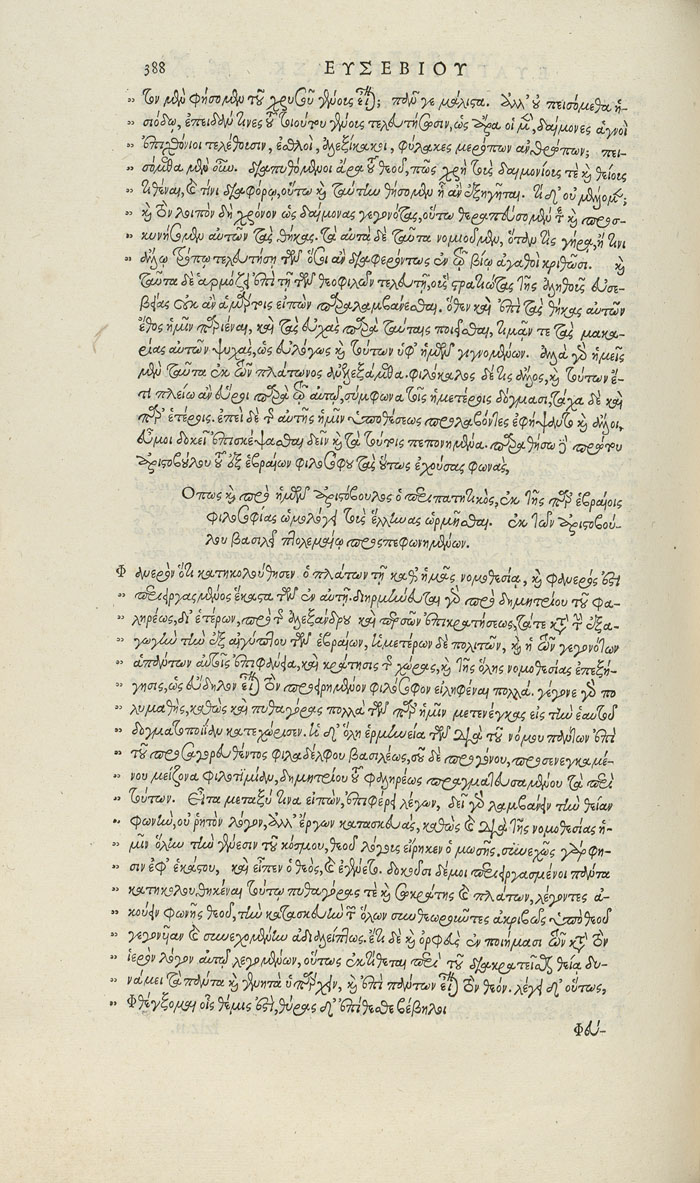 388 ΕΥΣΕΒΙΟΥ
τον μὲν φήσομεν τοῦ χρυσοῦ γένους εἶναι; πάνυ γε μάλιστα. ἀλλ' οὐ πεισόμεθα ἡ-
σιόδῳ, ἐπειδάν τινες τοῦ τοιούτου γένους τελευτήσωσιν, ὡς ἄρα οἱ μὲν, δαίμονες ἁγνοὶ
ἐπιχθόνιοι τελέθουσιν, ἐσθλοὶ, ἀλεξίκακοι, φύλακες μερόπων ἀνθρώπων; πει-
σόμεθα μὲν οὖν. διαπυθόμενοι ἄρα τοῦ θεοῦ, πῶς χρὴ τοὺς δαιμονίους τε καὶ θείους
τιθέναι, καὶ τίνι διαφόρῳ, οὕτω καὶ ταύτῃ θήσομεν ᾗ ἂν ἐξηγῆται. τί δ' οὐ μέλλομεν;
καὶ τὸν λοιπὸν δὴ χρόνον ὡς δαίμονας γεγονότας, οὕτω θεραπεύσομέν τε καὶ προσ-
κυνήσομεν αὐτῶν τὰς θήκας. τὰ αὐτὰ δὲ ταῦτα νομιοῦμεν, ὅταν τις γήρᾳ, ἤ τινι
ἄλλῳ τρόπῳ τελευτήσῃ τῶν ὅσοι ἂν διαφερόντως ἐν τῷ βίῳ ἀγαθοὶ κριθῶσι. καὶ
ταῦτα δὲ ἁρμόζει ἐπὶ τῇ τῶν θεοφιλῶν τελευτῇ, οὓς στρατιώτας τῆς ἀληθοῦς εὐσε-
βείας οὐκ ἂν ἁμάρτοις εἰπὼν παραλαμβάνεσθαι. ὅθεν καὶ ἐπὶ τὰς θήκας αὐτῶν
ἔθος ἡμῖν παριέναι, καὶ τὰς εὐχὰς παρὰ ταύταις ποιεῖσθαι, τιμᾶν τε τὰς μακα-
ρίας αὐτῶν ψυχὰς, ὡς εὐλόγως καὶ τούτων ὑφ' ἡμῶν γιγνομένων. ἀλλὰ γὰρ ἡμεῖς
μὲν ταῦτα ἐκ τῶν πλάτωνος ἀνελεξάμεθα. φιλόκαλος δέ τις ἄλλος, καὶ τούτων ἔ-
τι πλείω ἂν εὕροι παρὰ τῷ αὐτῷ, σύμφωνα τοῖς ἡμετέροις δόγμασι, τάχα δὲ καὶ
παρ' ἑτέροις. ἐπεὶ δὲ τῆς αὐτῆς ἡμῖν ὑποθέσεως προλαβόντες ἐφήψαντο καὶ ἄλλοι,
εὖ μοι δοκεῖ ἐπισκέψασθαι δεῖν καὶ τὰ τούτοις πεπονημένα. παραθήσω δὲ πρώτου
ἀριστοβούλου τοῦ ἐξ ἑβραίων φιλοσόφου τὰς οὕτως ἐχούσας φωνάς,
Ὅπως καὶ πρὸ ἡμῶν ἀριστόβουλος ὁ περιπατητικὸς, ἐκ τῆς παρ' ἑβραίοις
φιλοσοφίας ὡμολόγει τοὺς ἕλληνας ὡρμῆσθαι. ἐκ τῶν ἀριστοβού-
λου βασιλεῖ πτολεμαίῳ προσπεφωνημένων.
Φανερὸν ὅτι κατηκολούθησεν ὁ πλάτων τῇ καθ' ἡμᾶς νομοθεσίᾳ, καὶ φανερός ἐστι
περιειργασμένος ἕκαστα τῶν ἐν αὐτῇ. διηρμήνευται γὰρ πρὸ δημητρίου τοῦ φα-
ληρέως, δι' ἑτέρων, πρὸ τῆς ἀλεξάνδρου καὶ περσῶν ἐπικρατήσεως, τά τε κατὰ τὴν ἐξα-
γωγὴν τὴν ἐξ αἰγύπτου τῶν ἑβραίων, ἡμετέρων δὲ πολιτῶν, καὶ ἡ τῶν γεγονότων
ἁπάντων αὐτοῖς ἐπιφάνεια, καὶ κράτησις τῆς χώρας, καὶ τῆς ὅλης νομοθεσίας ἐπεξή-
γησις, ὡς εὔδηλον εἶναι τὸν προειρημένον φιλόσοφον εἰληφέναι πολλά. γέγονε γὰρ πο
λυμαθής, καθὼς καὶ πυθαγόρας πολλὰ τῶν παρ' ἡμῖν μετενέγκας εἰς τὴν ἑαυτοῦ
δογματοποιΐαν κατεχώρισεν. ἡ δ' ὅλη ἑρμηνεία τῶν διὰ τοῦ νόμου πάντων ἐπὶ
τοῦ προσαγορευθέντος φιλαδέλφου βασιλέως, σοῦ δὲ προγόνου, προσενεγκαμέ-
νου μείζονα φιλοτιμίαν, δημητρίου τοῦ φαληρέως πραγματευσαμένου τὰ περὶ
τούτων. Εἶτα μεταξύ τινα εἰπὼν, ἐπιφέρει λέγων, δεῖ γὰρ λαμβάνειν τὴν θείαν
φωνὴν, οὐ ῥητὸν λόγον, ἀλλ' ἔργων κατασκευὰς, καθὼς καὶ διὰ τῆς νομοθεσίας ἡ-
μῖν ὅλην τὴν γένεσιν τοῦ κόσμου, θεοῦ λόγους εἴρηκεν ὁ μωσῆς. συνεχῶς γάρ φη-
σιν ἐφ' ἑκάστου, καὶ εἶπεν ὁ θεὸς, καὶ ἐγένετο. δοκοῦσι δέ μοι περιειργασμένοι πάντα
κατηκολουθηκέναι τούτῳ πυθαγόρας τε καὶ σωκράτης καὶ πλάτων, λέγοντες ἀ-
κούειν φωνῆς θεοῦ, τὴν κατασκευὴν τῶν ὅλων συνθεωροῦντες ἀκριβῶς ὑπὸ θεοῦ
γεγονυῖαν καὶ συνεχομένην ἀδιαλείπτως. ἔτι δὲ καὶ ὀρφεὺς ἐν ποιήμασι τῶν κατὰ τὸν
ἱερὸν λόγον αὐτῷ λεγομένων, οὕτως ἐκτίθεται περὶ τοῦ διακρατεῖσθαι θείᾳ δυ-
νάμει τὰ πάντα καὶ γενητὰ ὑπάρχειν, καὶ ἐπὶ πάντων εἶναι τὸν θεόν. λέγει δ' οὕτως,
Φθέγξομαι οἷς θέμις ἐστὶ, θύρας δ' ἐπίθεσθε βέβηλοι
Φεύ-